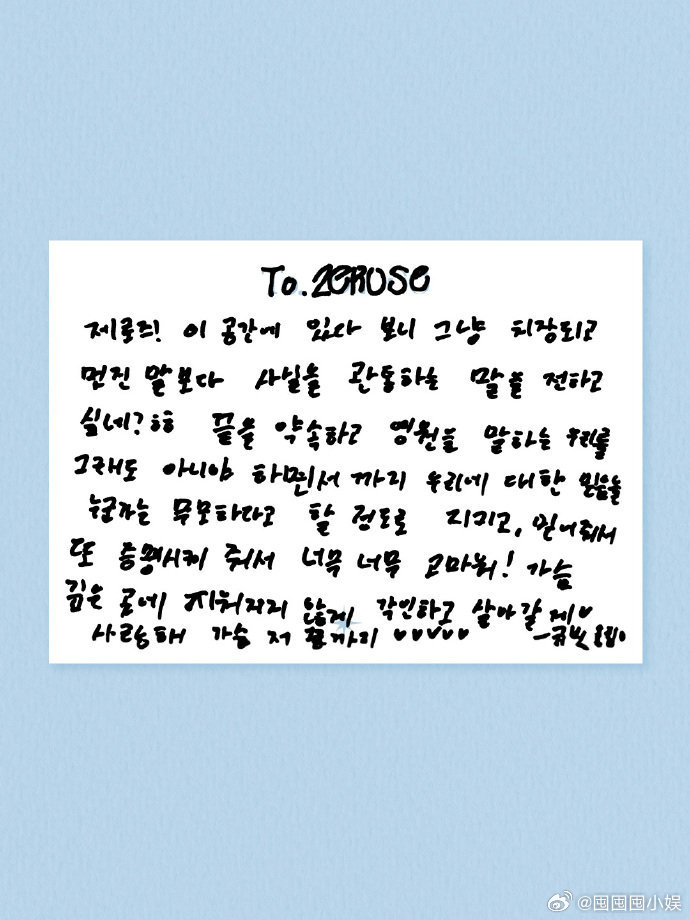 To. ZEROSE
제로즈! 이 공간에 있다 보니 그냥 치장되고
멋진 말보다 사실을 관통하는 말을 전하고
싶네? ㅎㅎ 끝을 약속하고 영원을 말하는 우리를
그래도 아니야 하면서 까지 우리에 대한 믿음을
누군가는 무모하다고 할 정도로 지키고, 믿어줘서
또 증명시켜 줘서 너무 너무 고마워! 가슴
깊은 곳에 지워지지 않게 각인하고 살아갈게♥
사랑해 가슴 저 끝까지 ♥♥♥♥♥
@囤囤囤小娱